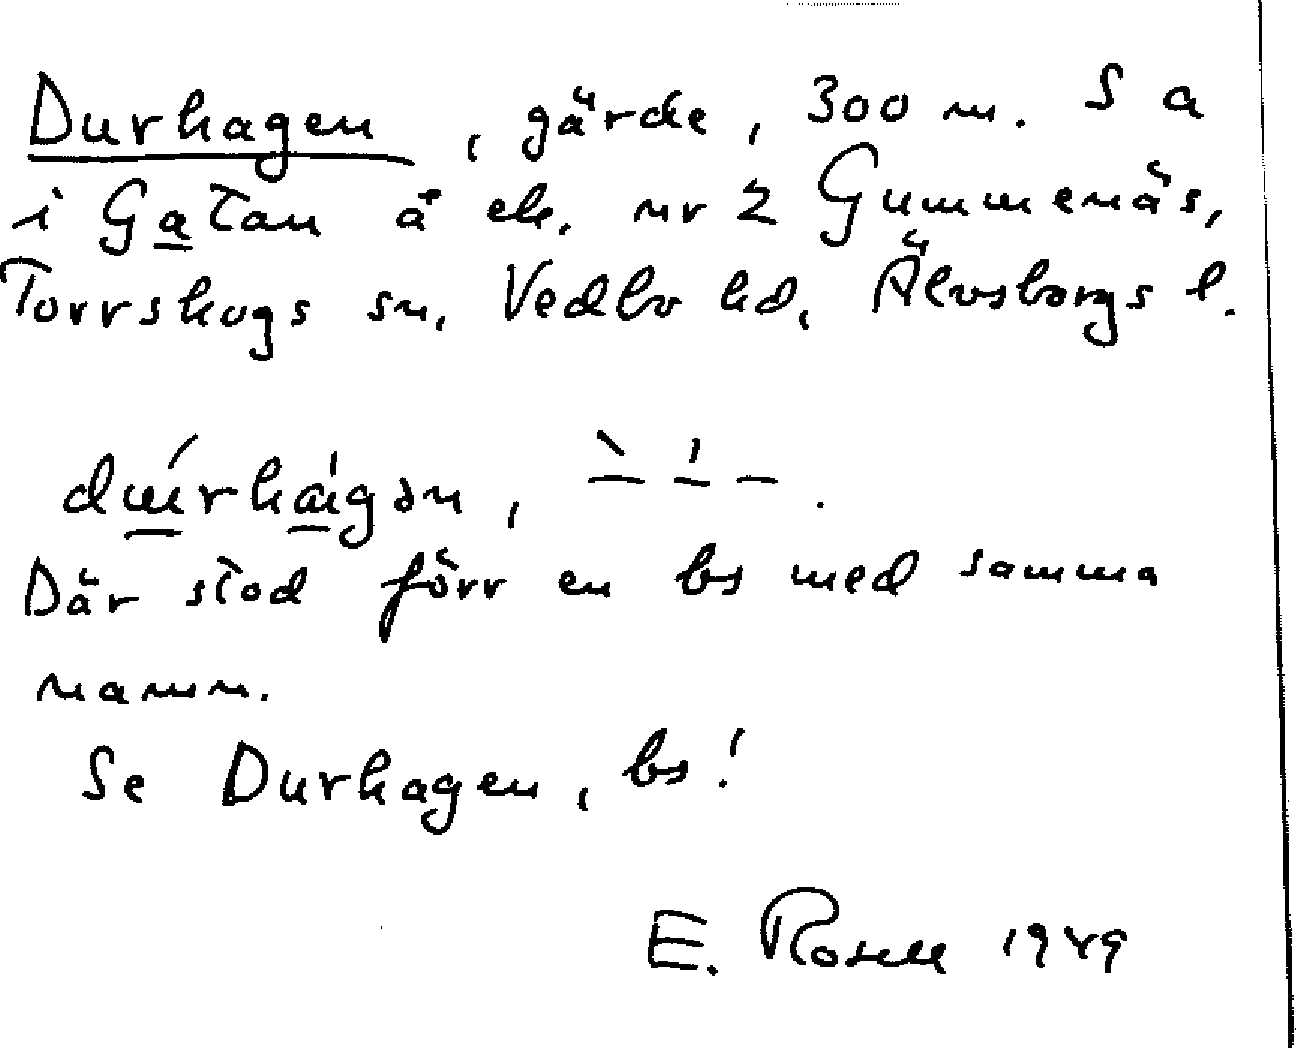 Durhagen, gärde, 300 m. S a
i Gatan å eh. nr 2 Gummenäs,
Torrskogs sn, Vedbo hd, Älvsborgs l.
Där stod förr en bs med samma
namn.
Se Durhagen, bs!
E. Rosell 1949